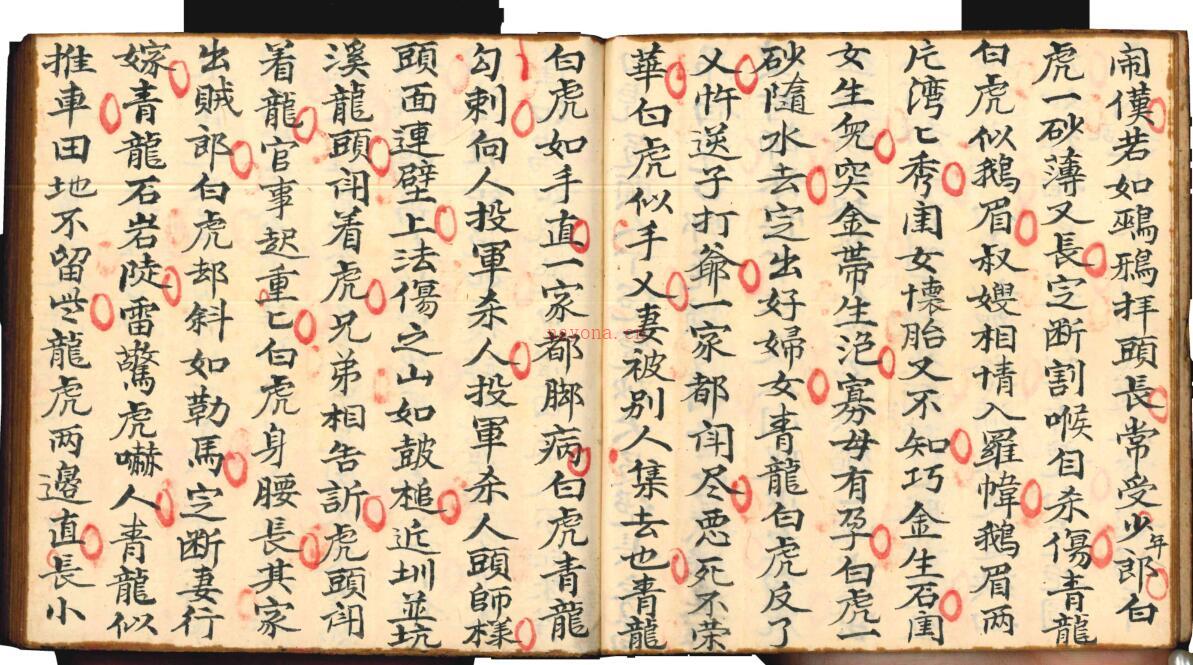 闹僕若如鵶鴉拜頭長常受少年郎白
虎一砂薄又長定断割喉自杀傷青龍
白虎似鵝眉叔嫂相情入羅幃鵝眉两
片湾匕秀闺女懐胎又不知巧金生石闺
女生兒突金帶生浥寡母有孕白虎一
砂隨水去定出好婦女青龍白虎反了
乂忤逆子打爺一家都闬尽恶死不荣
華白虎似手乂妻被别人集去也青龍
白虎如手直一家都脚病白虎青龍
勾刺向人投軍杀人投軍杀人頭師樣
頭面連壁上法傷之山如皷槌近圳並坑
溪龍頭闬着虎兄弟相告訴虎頭闬
着龍官事起重匕白虎身腰長其家
出賊郎白虎却斜如勒馬定断妻行
嫁青龍石岩陡雷驚虎嚇人青龍似
推車田地不留些龍虎两邉直長小
nayona.cn